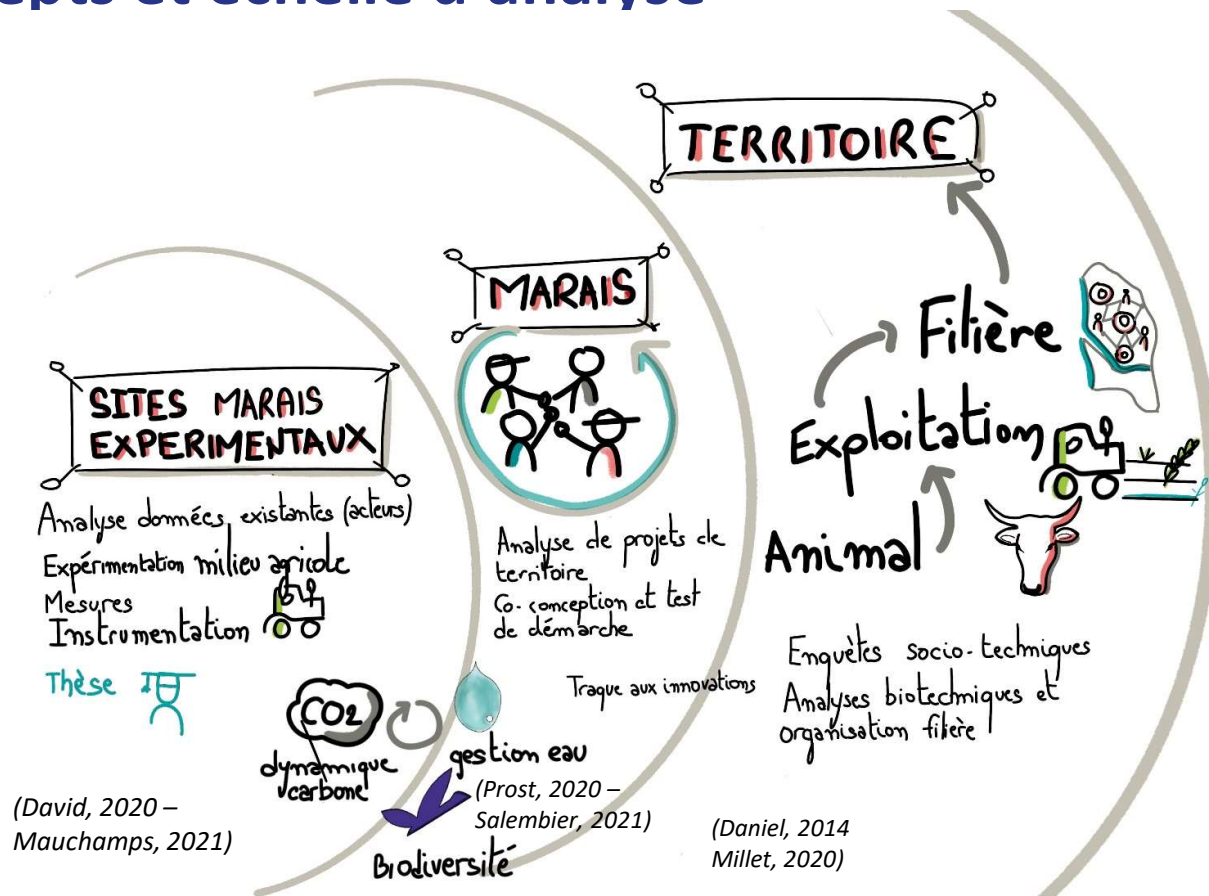 epts et échelle d'analyse
TERRITOIRE
MARAIS
SITES MARAIS
EXPERIMENTAUX
Filière
Exploitation
Animal
Analyse données existantes (acteurs)
Expérimentation milieu agricole
Mesures
Instrumentation
Thèse
Analyse de projets de
territoire
Co-conception et test
de démarche
Traque aux innovations
Enquètes socio-techniques
Analyses biotechniques et
organisation filière
CO2
dynamique
carbone
gestion eau
Biodiversité
(David, 2020 –
Mauchamps, 2021)
(Prost, 2020 –
Salembier, 2021)
(Daniel, 2014
Millet, 2020)